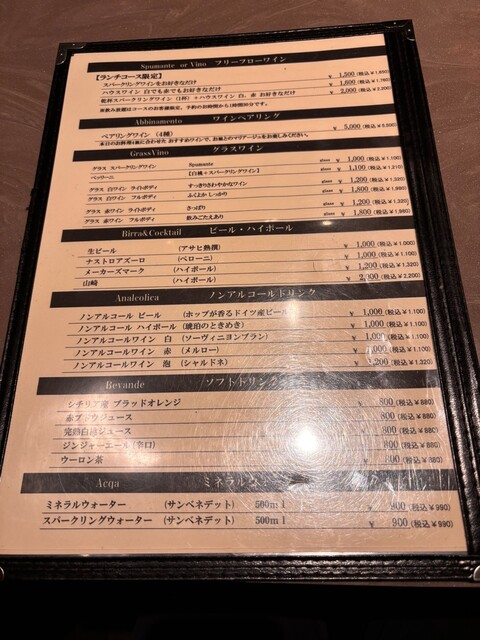 Spumante or Vino フリーフローワイン
【ランチコース限定】
スパークリングワインをお好きなだけ ￥ 1,500 (税込￥1,650)
ハウスワイン 白でも赤でもお好きなだけ ￥ 1,600 (税込￥1,760)
乾杯スパークリングワイン（1杯）＋ハウスワイン 白、赤 お好きなだけ ￥ 2,000 (税込￥2,200)
Abbinamento ワインペアリング
ペアリングワイン （4種） ￥ 5,000 (税込￥5,500)
本日のお料理4皿に合わせた おすすめワインで、お皿とのマリアージュをお楽しみください。
GrassVino グラスワイン
グラス スパークリングワイン Spumante glass ￥ 1,000 (税込￥1,100)
ベッリーニ 【白桃＋スパークリングワイン】 glass ￥ 1,100 (税込￥1,210)
グラス 白ワイン ライトボディ すっきりさわやかなワイン glass ￥ 1,200 (税込￥1,320)
グラス 白ワイン フルボディ ふくよか しっかり glass ￥ 1,800 (税込￥1,980)
グラス 赤ワイン ライトボディ さっぱり glass ￥ 1,200 (税込￥1,320)
グラス 赤ワイン フルボディ 飲みごたえあり glass ￥ 1,800 (税込￥1,980)
Birra&Cocktail ビール・ハイボール
生ビール （アサヒ熟撰） ￥ 1,000 (税込￥1,000)
ナストロアズーロ （ペローニ） ￥ 1,000 (税込￥1,100)
メーカーズマーク （ハイボール） ￥ 1,200 (税込￥1,320)
山崎 （ハイボール） ￥ 2,000 (税込￥2,200)
Analcolica ノンアルコールドリンク
ノンアルコール ビール （ホップが香るドイツ産ビール ￥ 1,000 (税込￥1,100)
ノンアルコール ハイボール （琥珀のときめき） ￥ 1,000 (税込￥1,100)
ノンアルコールワイン 白 （ソーヴィニヨンブラン） ￥ 1,000 (税込￥1,100)
ノンアルコールワイン 赤 （メルロー） ￥ 1,000 (税込￥1,100)
ノンアルコールワイン 泡 （シャルドネ） ￥ 1,200 (税込￥1,320)
Bevande ソフトドリンク
シチリア産 ブラッドオレンジ ￥ 800 (税込￥880)
赤ブドウジュース ￥ 800 (税込￥880)
完熟白桃ジュース ￥ 800 (税込￥880)
ジンジャーエール(辛口) ￥ 800 (税込￥880)
ウーロン茶 ￥ 800 (税込￥880)
Acqa ミネラルウォーター
ミネラルウォーター （サンベネデット） 500ｍｌ ￥ 900 (税込￥990)
スパークリングウォーター （サンベネデット） 500ｍｌ ￥ 900 (税込￥990)